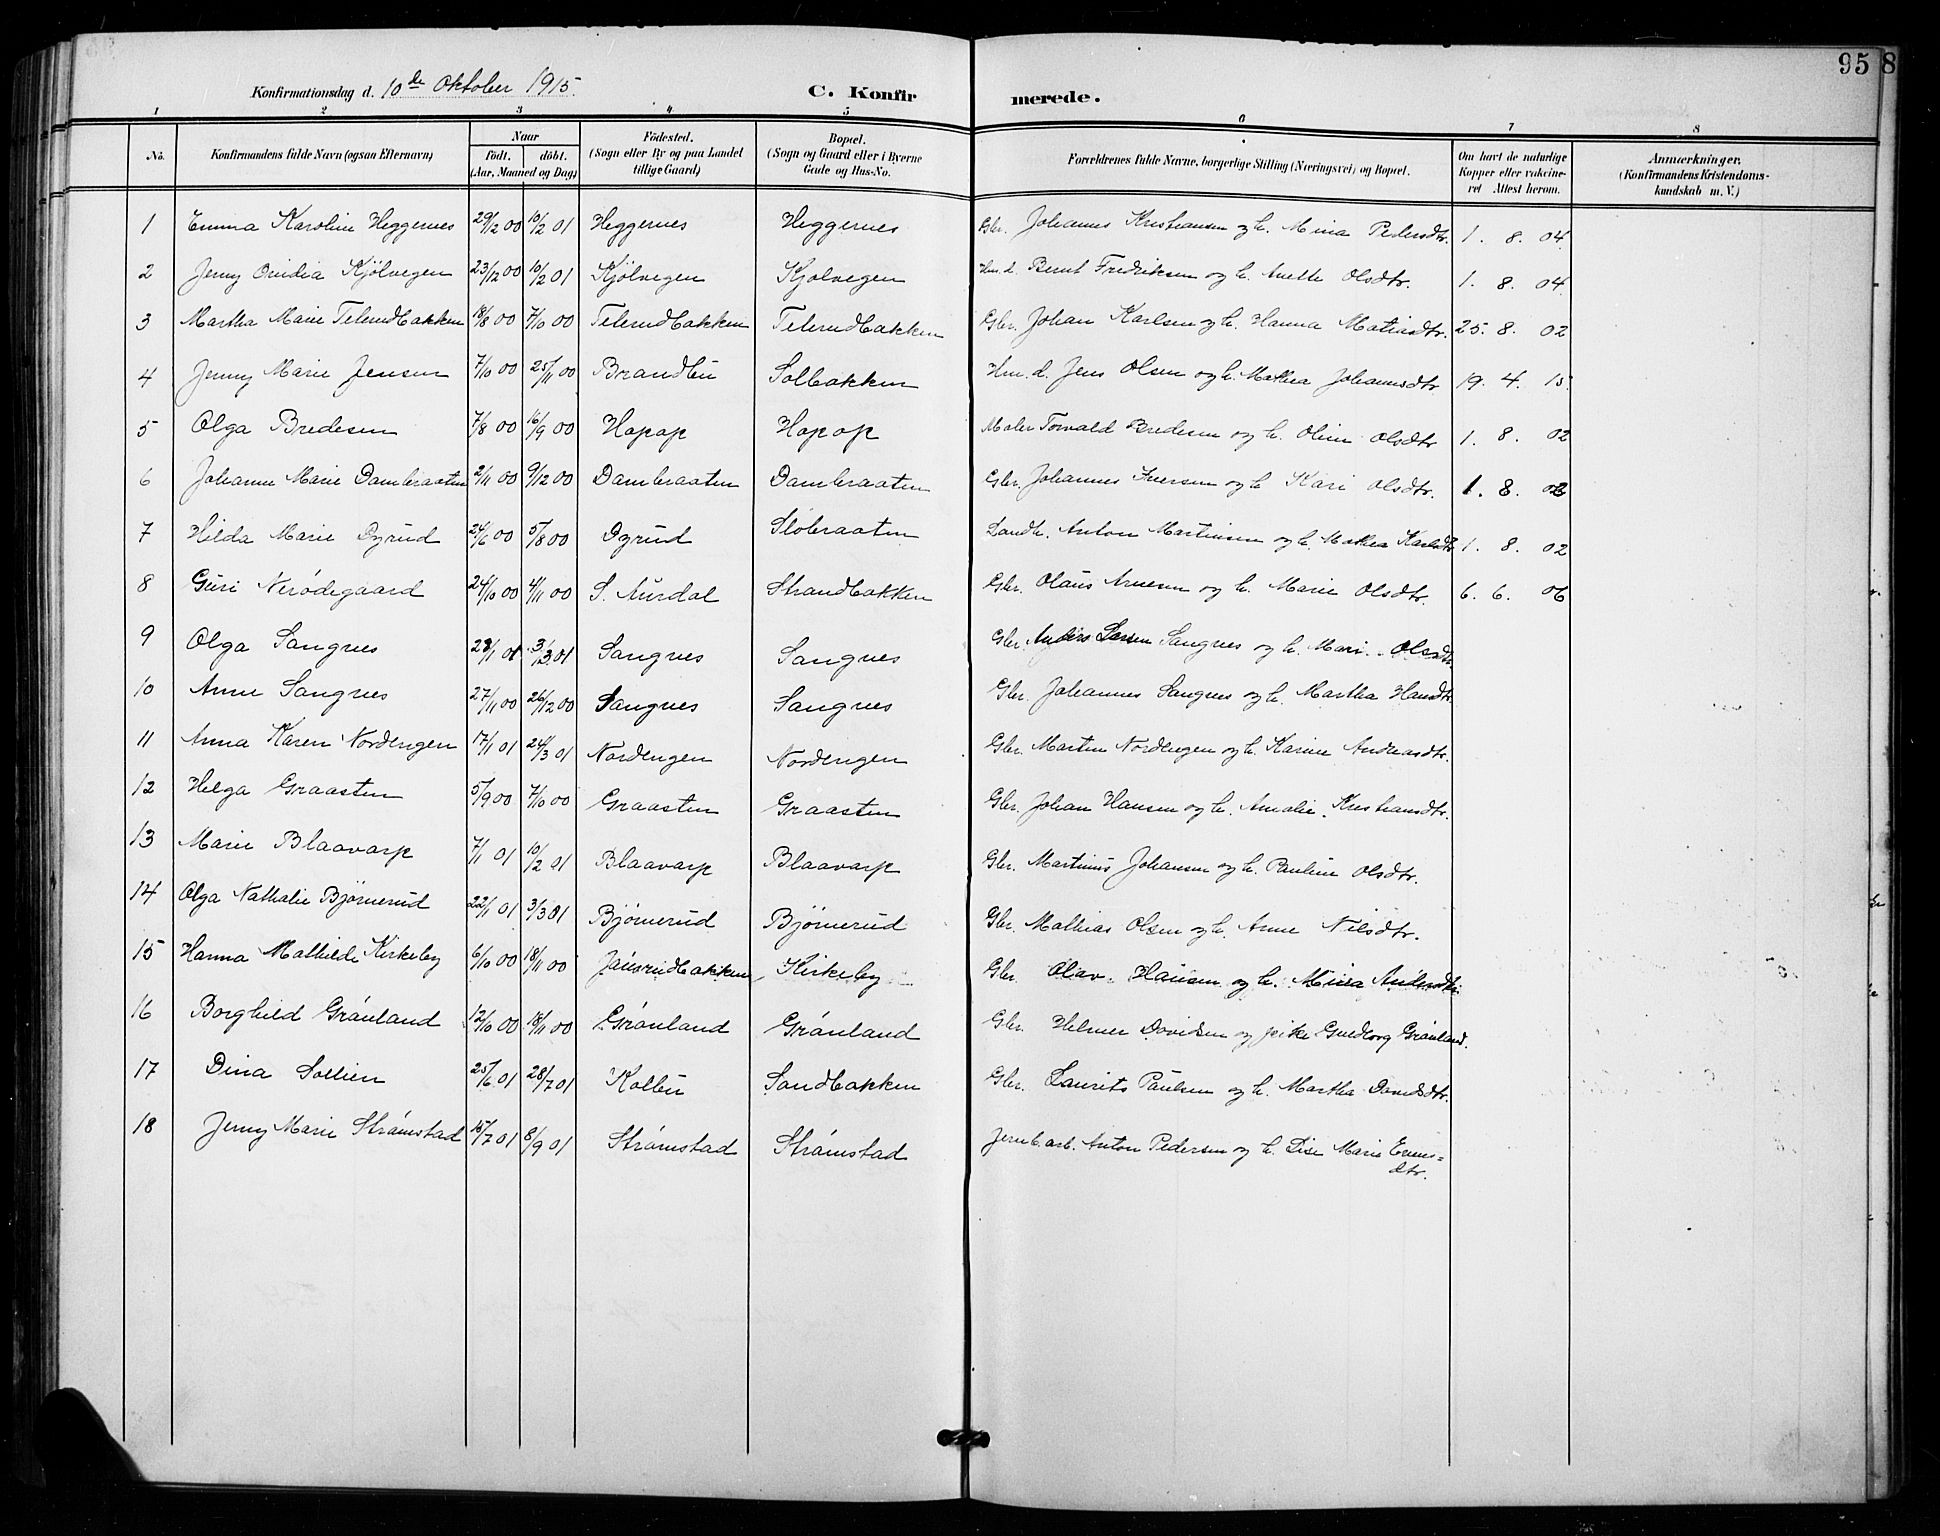 95 8
Konfirmationsdag d. 10de Oktober 1915. C. Konfir merede.
1 2 3 4 5 6 7 8
No. Konfirmandens fulde Navn (ogsaa Efternavn) Naar født. døbt. (Aar, Maaned og Dag) Födested. (Sogn eller By og paa Landet tillige Gaard) Bopæl. (Sogn og Gaard eller i Byerne Gade og Hus-No. Forældrenes fulde Navne, borgerlige Stilling (Næringsvei) og Bopæl. Om havt de naturlige Kopper eller vakcineret Attest herom. Anmærkninger, (Konfirmandens Kristendomskundskab m. V.)
1 Emma Karoline Heggernes 29/12 00 10/2 01 Heggernes Heggernes Gbr. Johannes Kristiansen og h. Mina Pedersdtr. 1. 8. 04.
2 Jenny Ovidia Kjölvegen 23/12 00 10/2 01 Kjölvegen Kjölvegen Hm. d. Bernt Fredriksen og h. Anette Olsdtr. 1. 8. 04.
3 Martha Marie Telerudbakken 18/8 00 7/10 00 Telerudbakken Telerudbakken Gbr. Johan Karlsen og h. Hanna Matiasdtr. 25. 8. 02
4 Jenny Marie Jensen 7/10 00 25/11 00 Brandbu Solbakken Hm. d. Jens Olsen og h. Mathea Johannesdtr 19. 4. 15.
5 Olga Bredesen 7/8 00 16/9 00 Hopop Hopop Maler Torvald Bredesen og h. Oline Olsdtr 1. 8. 02
6 Johanne Marie Dambraaten 2/11 00 9/12 00 Dambraaten Dambraaten Gbr. Johannes Iversen og h. Kari Olsdtr. 1. 8. 02
7 Hilda Marie Dyrud 24/6 00 5/8 00 Dyrud Slöbraaten Landh. Anton Martinsen og h. Mathea Karlsdtr 1. 8. 02
8 Guri Nerödegaard 24/10 00 4/11 00 S. Aurdal Strandbakken Gbr. Olaus Arnesen og h. Marie Olsdtr. 6. 6. 06
9 Olga Sangnes 28/1 01 3/3 01 Sangnes Sangnes Gbr. Anders Larsen Sangnes og h. Mari Olsdtr
10 Anne Sangnes 27/11 00 26/12 00 Sangnes Sangnes Gbr. Johannes Sangnes og h. Martha Hansdtr.
11 Anna Karen Nordengen 17/1 01 24/3 01 Nordengen Nordengen Gbr. Martin Nordengen og h. Karine Andreasdtr.
12 Helga Graasten 5/9 00 7/10 00 Graasten Graasten Gbr. Johan Hansen og h. Amalie Kristiansdtr.
13 Marie Blaavarp 7/1 01 10/2 01 Blaavarp Blaavarp Gbr. Martinus Johansen og h. Pauline Olsdtr.
14 Olga Nathalie Bjørnerud 22/1 01 3/3 01 Bjørnerud Bjørnerud Gbr. Mathias Olsen og h. Anne Nilsdtr.
15 Hanna Mathilde Kirkeby 6/10 00 18/11 00 Kirkeby Gbr. Olav Hansen og h. Mina Andersdtr.
16 Borghild Grönland 12/10 00 18/11 00 Grönland Grönland Gbr. Helmer Davidsen og pike Guldborg Grönland.
17 Dina Sollien 25/6 01 28/7 01 Kolbu Sandbakken Gbr. Laurits Paulsen og h. Martha Davidsdtr.
18 Jenny Marie Strömstad 15/7 01 8/9 01 Strömstad Strömstad Jernb. arb. Anton Pedersen og h. Lise Marie Evens=
dtr.